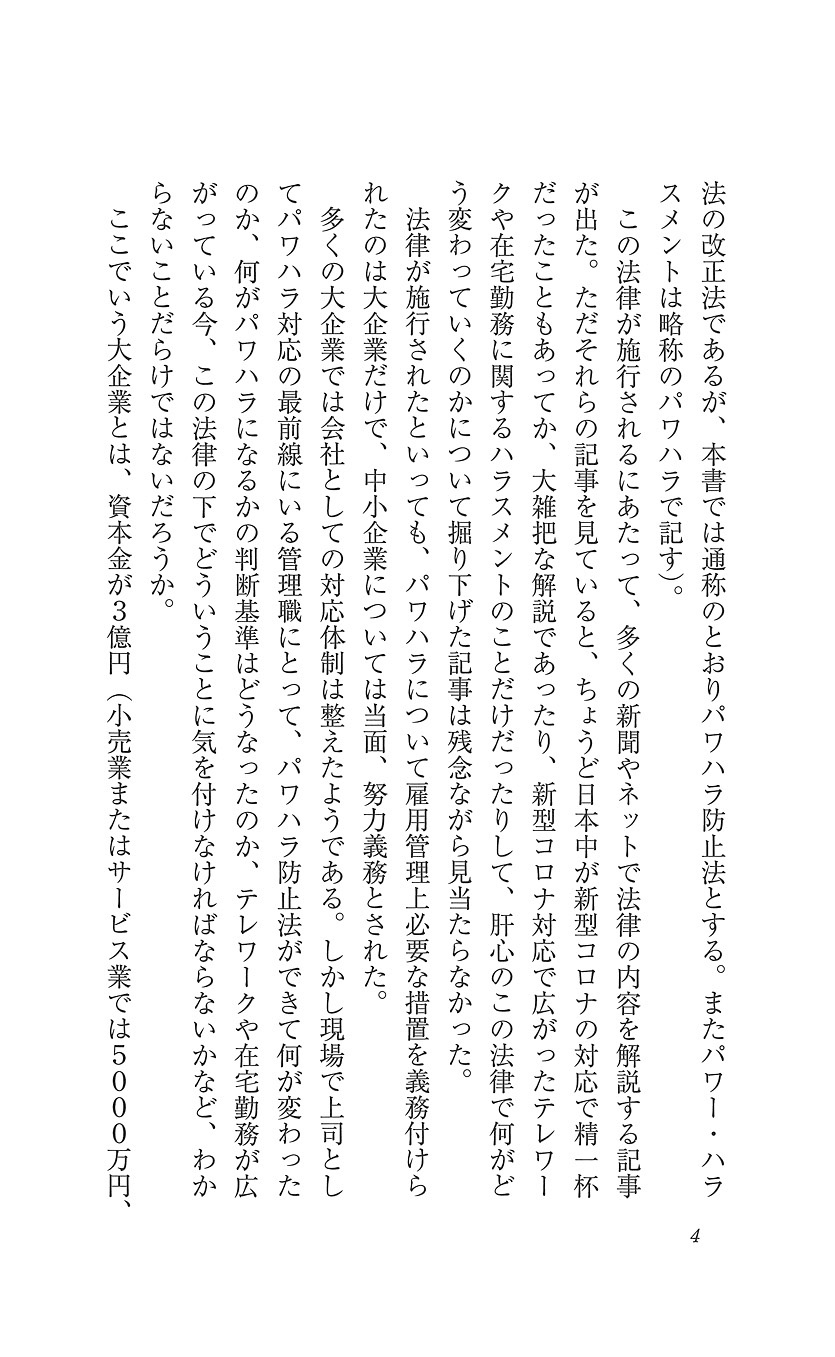 法の改正法であるが、本書では通称のとおりパワハラ防止法とする。またパワー・ハラ
スメントは略称のパワハラで記す)。
この法律が施行されるにあたって、多くの新聞やネットで法律の内容を解説する記事
が出た。ただそれらの記事を見ていると、ちょうど日本中が新型コロナの対応で精一杯
だったこともあってか、大雑把な解説であったり、新型コロナ対応で広がったテレワー
クや在宅勤務に関するハラスメントのことだけだったりして、肝心のこの法律で何がど
う変わっていくのかについて掘り下げた記事は残念ながら見当たらなかった。
法律が施行されたといっても、パワハラについて雇用管理上必要な措置を義務付けら
れたのは大企業だけで、中小企業については当面、努力義務とされた。
多くの大企業では会社としての対応体制は整えたようである。しかし現場で上司とし
てパワハラ対応の最前線にいる管理職にとって、パワハラ防止法ができて何が変わった
のか、何がパワハラになるかの判断基準はどうなったのか、テレワークや在宅勤務が広
がっている今、この法律の下でどういうことに気を付けなければならないかなど、わか
らないことだらけではないだろうか。
ここでいう大企業とは、資本金が3億円(小売業またはサービス業では5000万円、
4